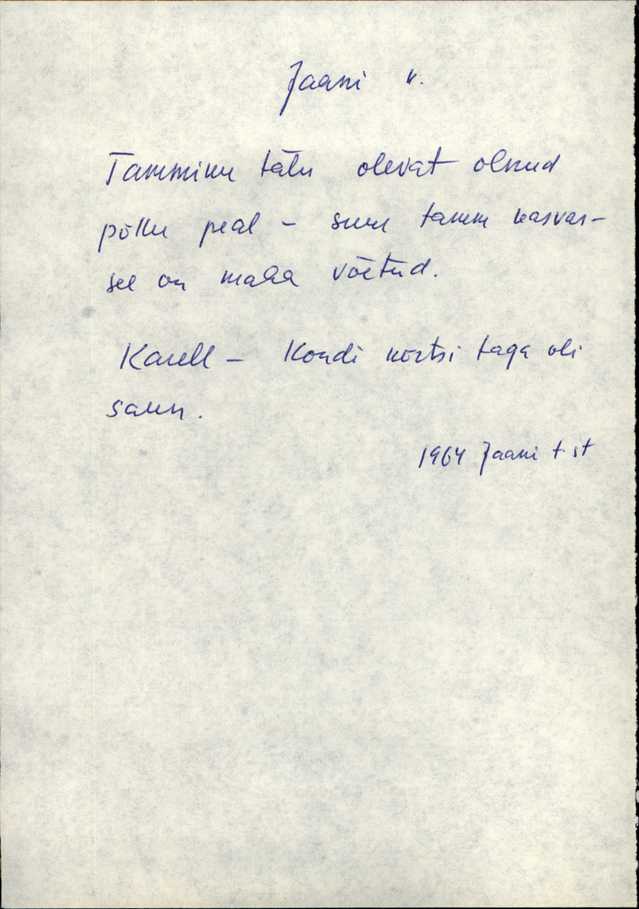 Jaani k.
Tammimu talu olevat olnud
põllu peal - suur tamm kasvas -
see on maha võetud.
Karell - Kondi kõrtsi taga oli
saun.
1964 Jaani t. st